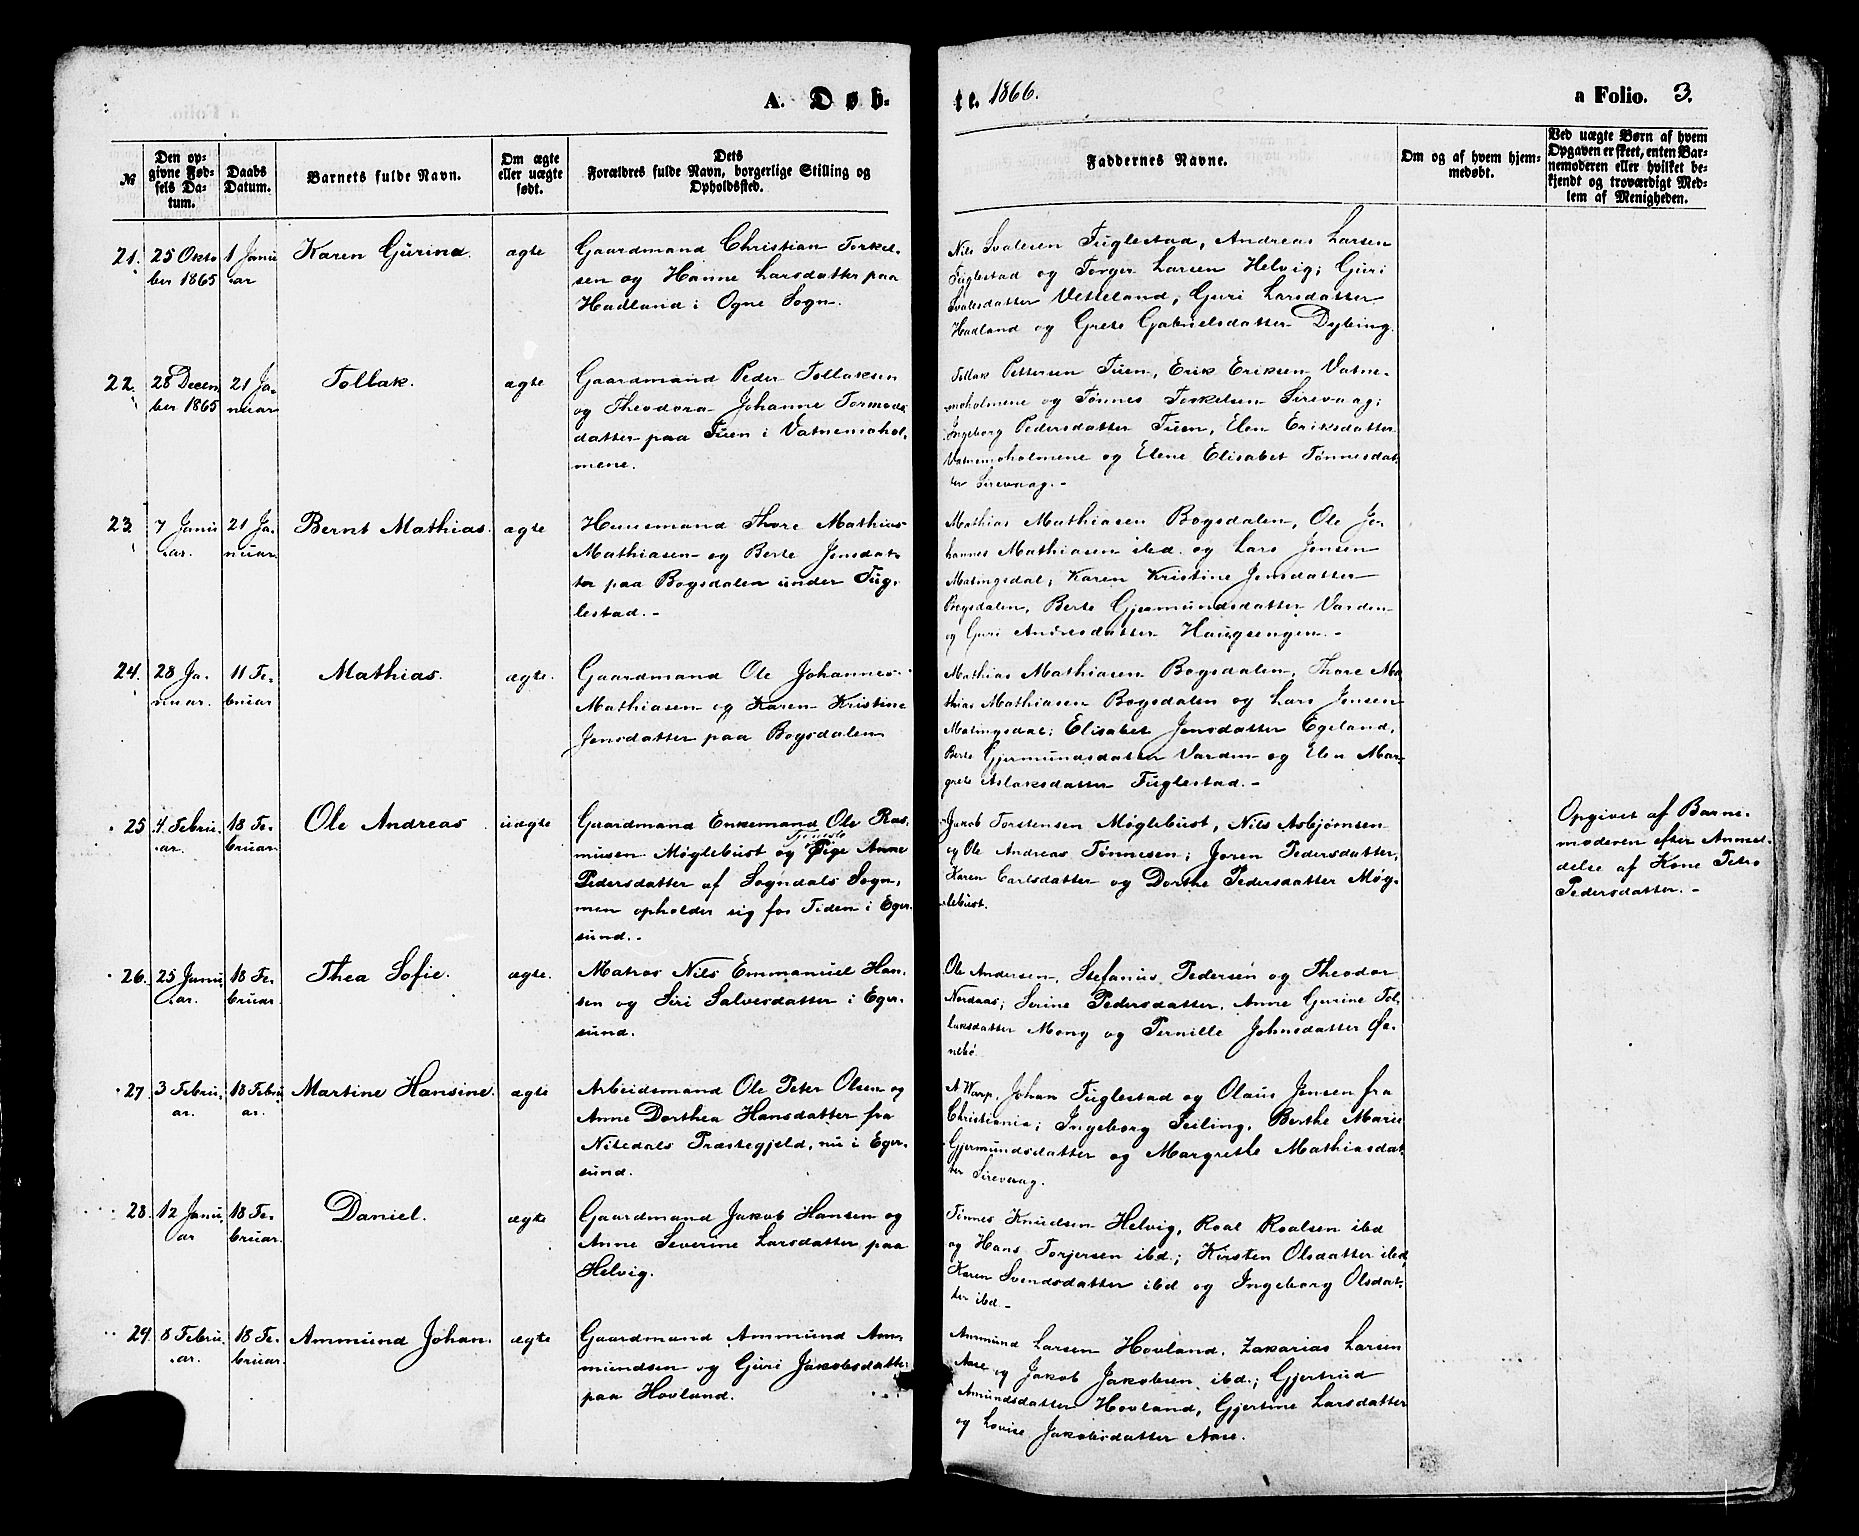 A. Døb-
te. 1866.
a Folio. 3.
№
Den op-
givne Fød-
sels Da-
tum.
Daabs
Datum.
Barnets fulde Navn.
Om ægte
eller uægte
født.
Dets
Forældres fulde Navn, borgerlige Stilling og
Opholdssted.
Faddernes Navne.
Om og af hvem hjem-
medøbt.
Ved uægte Børn af hvem
Opgaven er skeet, enten Bar-
nemoderen eller hvilket be-
kjendt og troværdigt Med-
lem af Menigheden.
21.
25 Okto
ber 1865
1 Janu
ar
Karen Gurine.
ægte
Gaardmand Christian Torkel-
sen og Hanne Larsdatter paa
Hadland i Ogne Sogn.
Nils Svalesen Fuglestad, Andreas Larsen
Fuglestad og Torger Larsen Helvig; Guri
Svalesdatter Vetteland, Guri Larsdatter
Hadland og Grete Gabrielsdatter Dybing.
22.
28 Decem
ber 1865
21 Ja-
nuar
Tollak.
ægte
Gaardmand Peder Tollaksen
og Theodora Johanne Tormods
datter paa Tuen i Vatnemohol-
mene.
Tollak Pettersen Tuen, Erik Eriksen Vatne-
moholmene og Tønnes Torkelsen Sirevaag;
Ingeborg Pedersdatter Tuen, Elen Eriksdatter
Vatnemoholmene og Elene Elisabet Tønnesdat-
ter Sirevaag.-
23
7 Janu
ar.
21 Ja-
nuar
Bernt Mathias.
ægte
Huusmand Thore Mathias
Mathiasen og Berte Jensdat-
ter paa Bogsdalen under Fug-
lestad.-
Mathias Mathiasen Bogsdalen, Ole Jo-
hannes Mathiasen ibd. og Lars Jensen
Matingsdal; Karen Kristine Jensdatter
Bogsdalen, Berte Gjermundsdatter Varden
og Guri Andresdatter Haugsengen.-
24.
28 Ja-
nuar.
11 Fe-
bruar
Mathias.
ægte.
Gaardmand Ole Johannes
Mathiasen og Karen Kristine
Jensdatter paa Bogsdalen
Mathias Mathiasen Bogsdalen, Thore Ma
thias Mathiasen Bogsdalen og Lars Jensen
Matingsdal; Elisabet Jensdatter Egeland,
Berte Gjermundsdatter Varden og Elen Mar-
grete Aslaksdatter Fuglestad.-
25
4. Febru-
ar.
18 Fe-
bruar
Ole Andreas
uægte
Gaardmand Enkemand Ole Ras-
musen Møglebust og Tjeneste Pige Anne
Pedersdatter af Sogndals Sogn,
men opholder sig for Tiden i Eger-
sund.-
Jakob Torstensen Møglebust, Nils Asbjørnsen
og Ole Andreas Tønnesen; Joren Pedersdatter,
Karen Carlsdatter og Dorthe Pedersdatter Møg-
lebust.
Opgivet af Barne-
moderen efter Anmel-
delse af Kone Petro
Pedersdatter.-
26.
25 Janu
ar.
18 Fe-
bruar
Thea Sofie.
ægte.
Matros Nils Emmanuel Han-
sen og Siri Salvesdatter i Eger-
sund.
Ole Andersen, Stefanus Pedersen og Theodor
Nordaas; Serine Pedersdatter, Anne Gurine Tol-
laksdatter Mong og Pernille Johnsdatter Øe-
nebø.
27.
3 Febru-
ar.
18 Febru
ar.
Martine Hansine.
ægte
Arbeidsmand Ole Peter Olsen og
Anne Dorthea Hansdatter fra
Nitedals Præstegjeld, nu i Eger-
sund.
A. Warp, Johan Fuglestad og Olaus Jensen fra
Christiania; Ingeborg Seiling, Berthe Marie
Gjermundsdatter og Margrethe Mathiasdat
ter Sirevaag.
28.
12 Janu
ar
18 Fe-
bruar.
Daniel.
ægte
Gaardmand Jakob Hansen og
Anne Severine Larsdatter paa
Helvig.
Tønnes Knudsen Helvig, Roal Roalsen ibd
og Hans Torjersen ibd.; Kirsten Olsdatter ibd,
Karen Svendsdatter ibd og Ingeborg Olsdat-
ter ibd.-
29.
8 Febru
ar.
18 Fe-
bruar.
Ammund Johan.
ægte
Gaardmand Ammund Am-
mundsen og Guri Jakobsdatter
paa Hovland.
Ammund Larsen Hovland, Zakarias Larsen
Aase og Jakob Jakobsen ibd.; Gjertrud
Amundsdatter Hovland, Gjertine Larsdatter
og Lovise Jakobsdatter Aase.